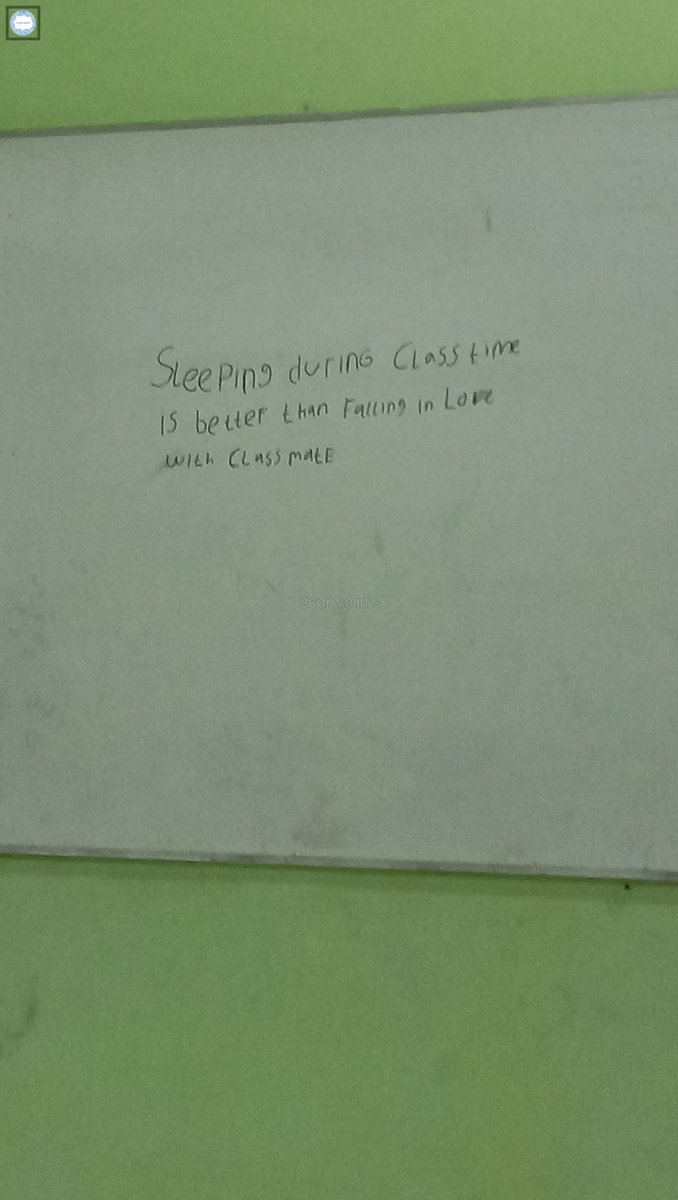 Sleeping during Class time
is better than Falling in Love
with Classmate
@convomfs